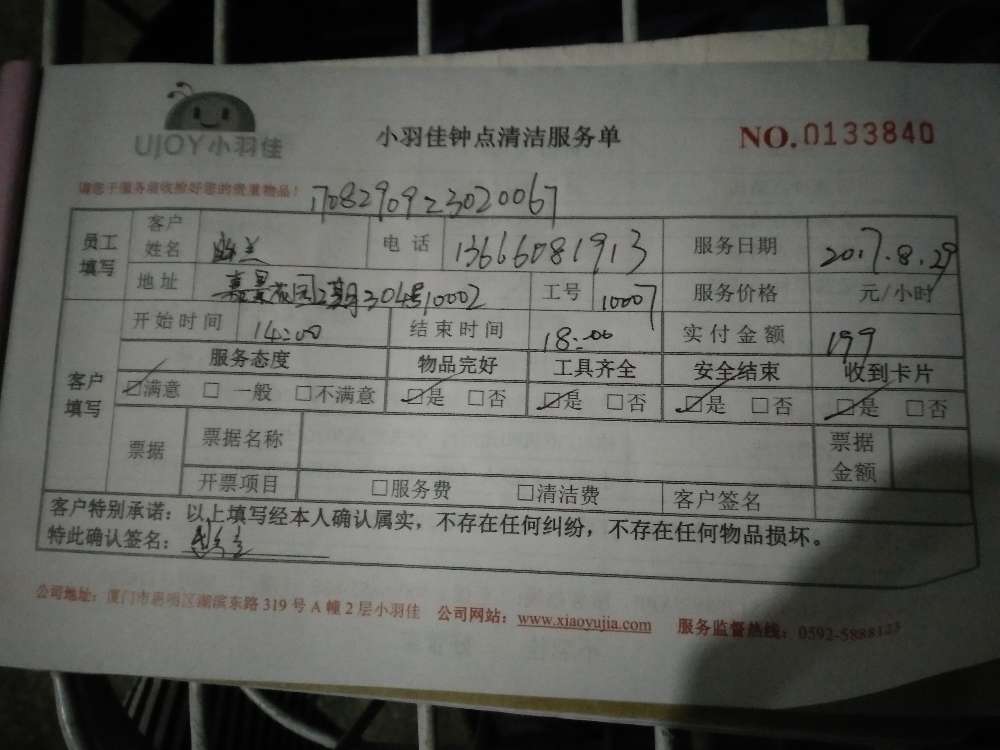 UJOY小羽佳
小羽佳钟点清洁服务单
NO.0133840
请您于服务前收捡好您的贵重物品!
1708290923020067
员工填写 客户姓名 电话 13666081913 服务日期 2017.8.29
地址 嘉景花园2期304号10002 工号 10007 服务价格 元/小时
客户填写 开始时间 14:00 结束时间 18:00 实付金额 199
服务态度 物品完好 工具齐全 安全结束 收到卡片
☑满意 □一般 □不满意 ☑是 □否 ☑是 □否 ☑是 □否 ☑是 □否
票据 票据名称 票据金额
开票项目 □服务费 □清洁费 客户签名
客户特别承诺：以上填写经本人确认属实，不存在任何纠纷，不存在任何物品损坏。
特此确认签名：
公司地址：厦门市思明区湖滨东路319号A幢2层小羽佳 公司网站：www.xiaoyujia.com 服务监督热线：0592-5888123